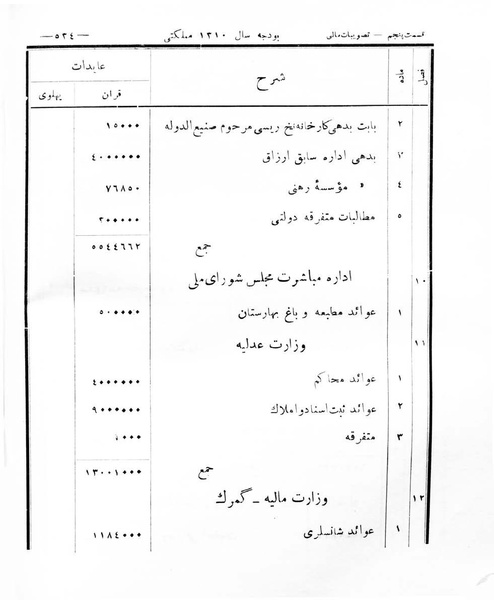 قسمت پنجم — تصویبات مالی بودجه سال ۱۳۱۰ مملکتی —۵۳۴—
فصل ماده شرح عایدات
قران پهلوی
۲ بابت بدهی کارخانه نخ ریسی مرحوم صنیع الدوله ۱۵۰۰۰
۳ بدهی اداره سابق ارزاق ۴۰۰۰۰۰۰
۴ " مؤسسهٔ رهنی ۷۶۸۵۰
۵ مطالبات متفرقه دولتی ۳۰۰۰۰۰
جمع ۵۵۴۴۶۶۲
۱۰ اداره مباشرت مجلس شورای ملی
۱ عوائد مطبعه و باغ بهارستان ۵۰۰۰۰۰
۱۱ وزارت عدلیه
۱ عوائد محاکم ۴۰۰۰۰۰۰
۲ عوائد ثبت اسناد و املاك ۹۰۰۰۰۰۰
۳ متفرقه ۱۰۰۰
جمع ۱۳۰۰۱۰۰۰
۱۲ وزارت مالیه - گمرك
۱ عوائد شانسلری ۱۱۸۴۰۰۰